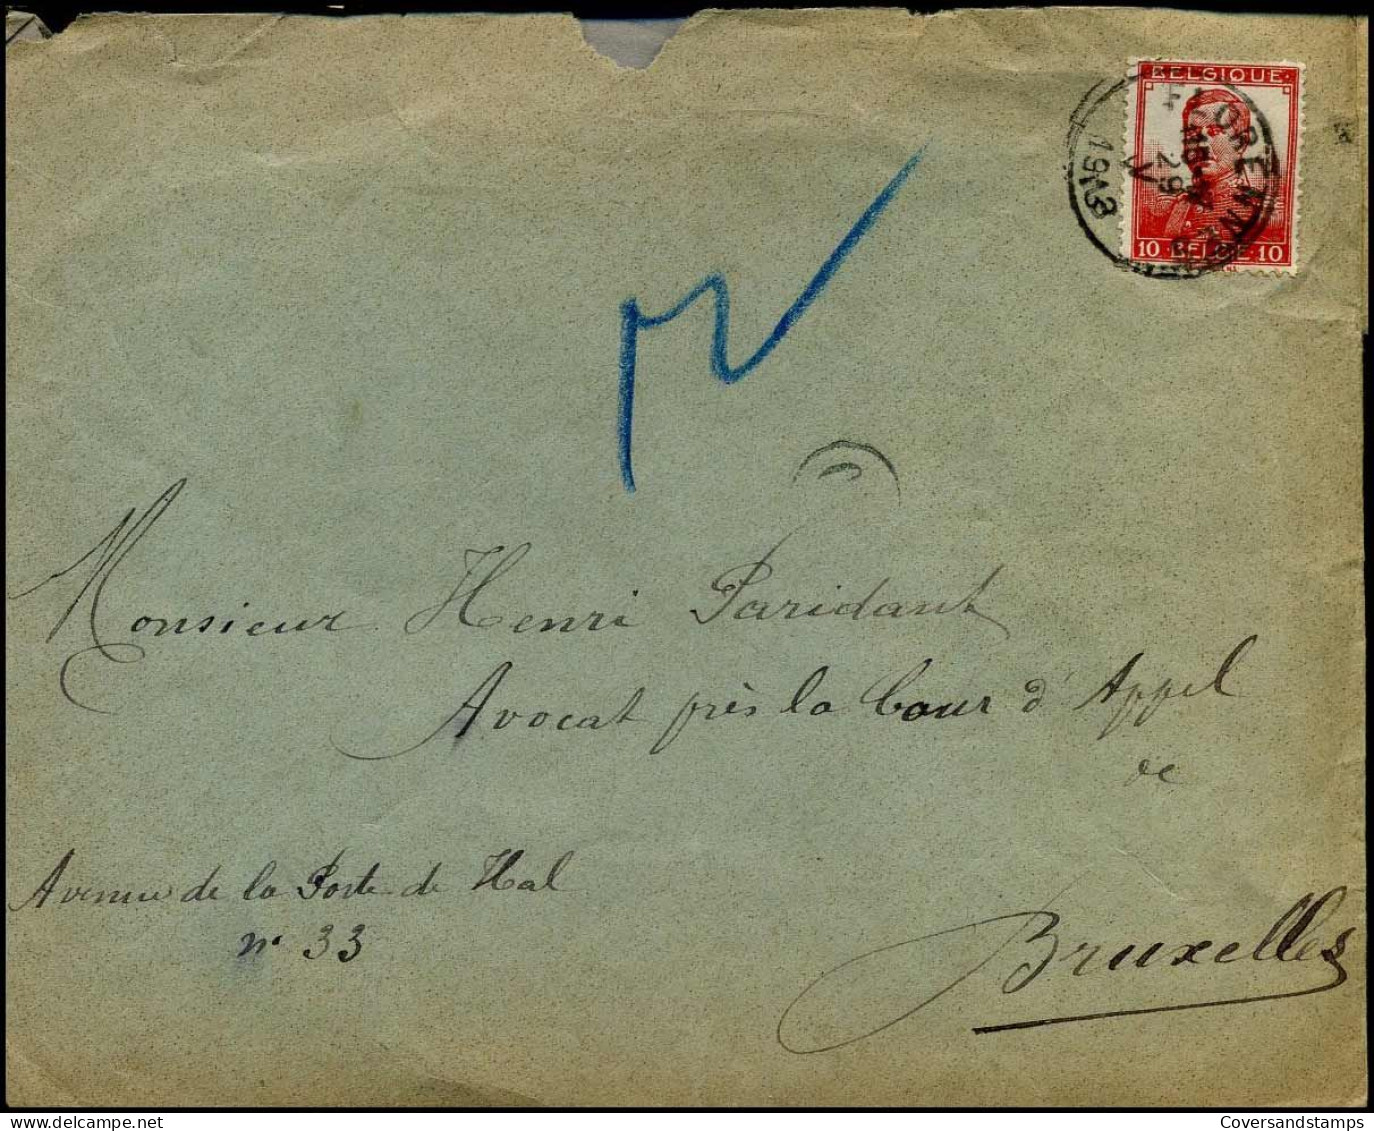 BELGIQUE
10 BELGIE 10
FLORENN
29
V
1913
Monsieur Henri Paridant
Avocat près la Cour d'Appel
de
Avenue de la Porte de Hal
n° 33
Bruxelles
CoversandStamps